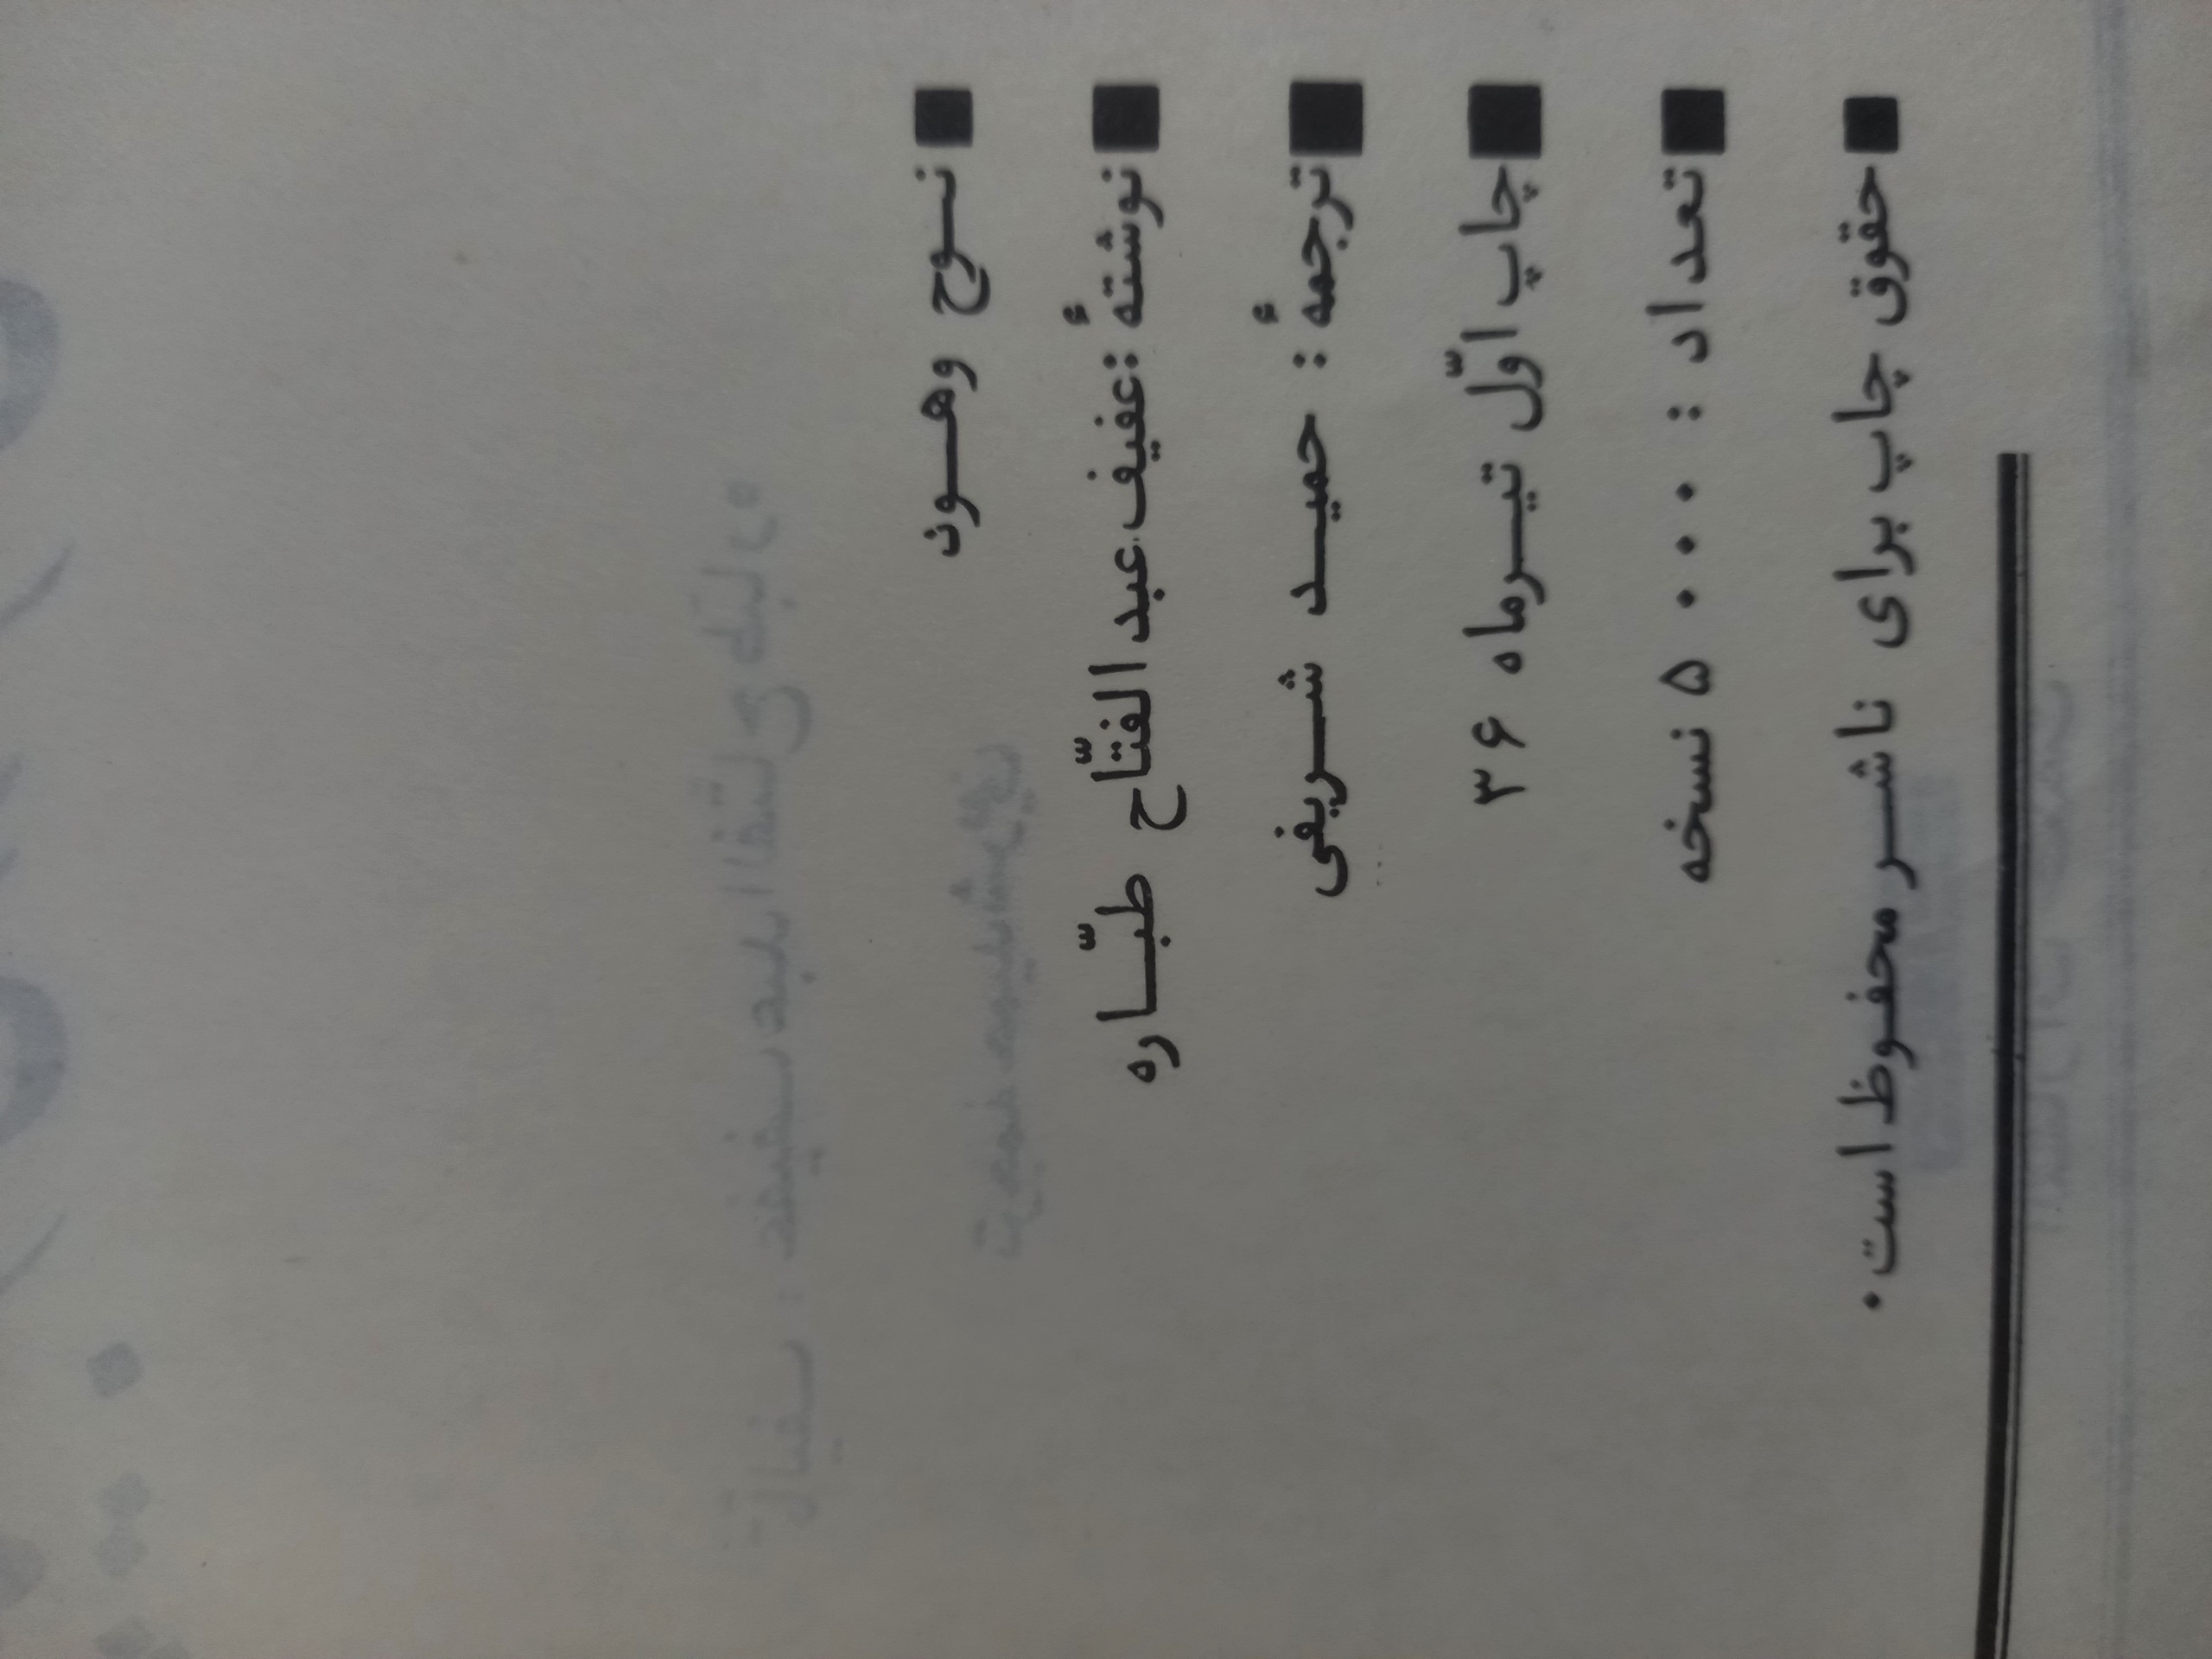 ■ نوح وهود
■ نوشتهٔ : عفیف عبدالفتّاح طبّاره
■ ترجمهٔ : حمید شریفی
■ چاپ اوّل تیرماه ۳۶
■ تعداد : ۵۰۰۰ نسخه
■ حقوق چاپ برای ناشر محفوظ است.